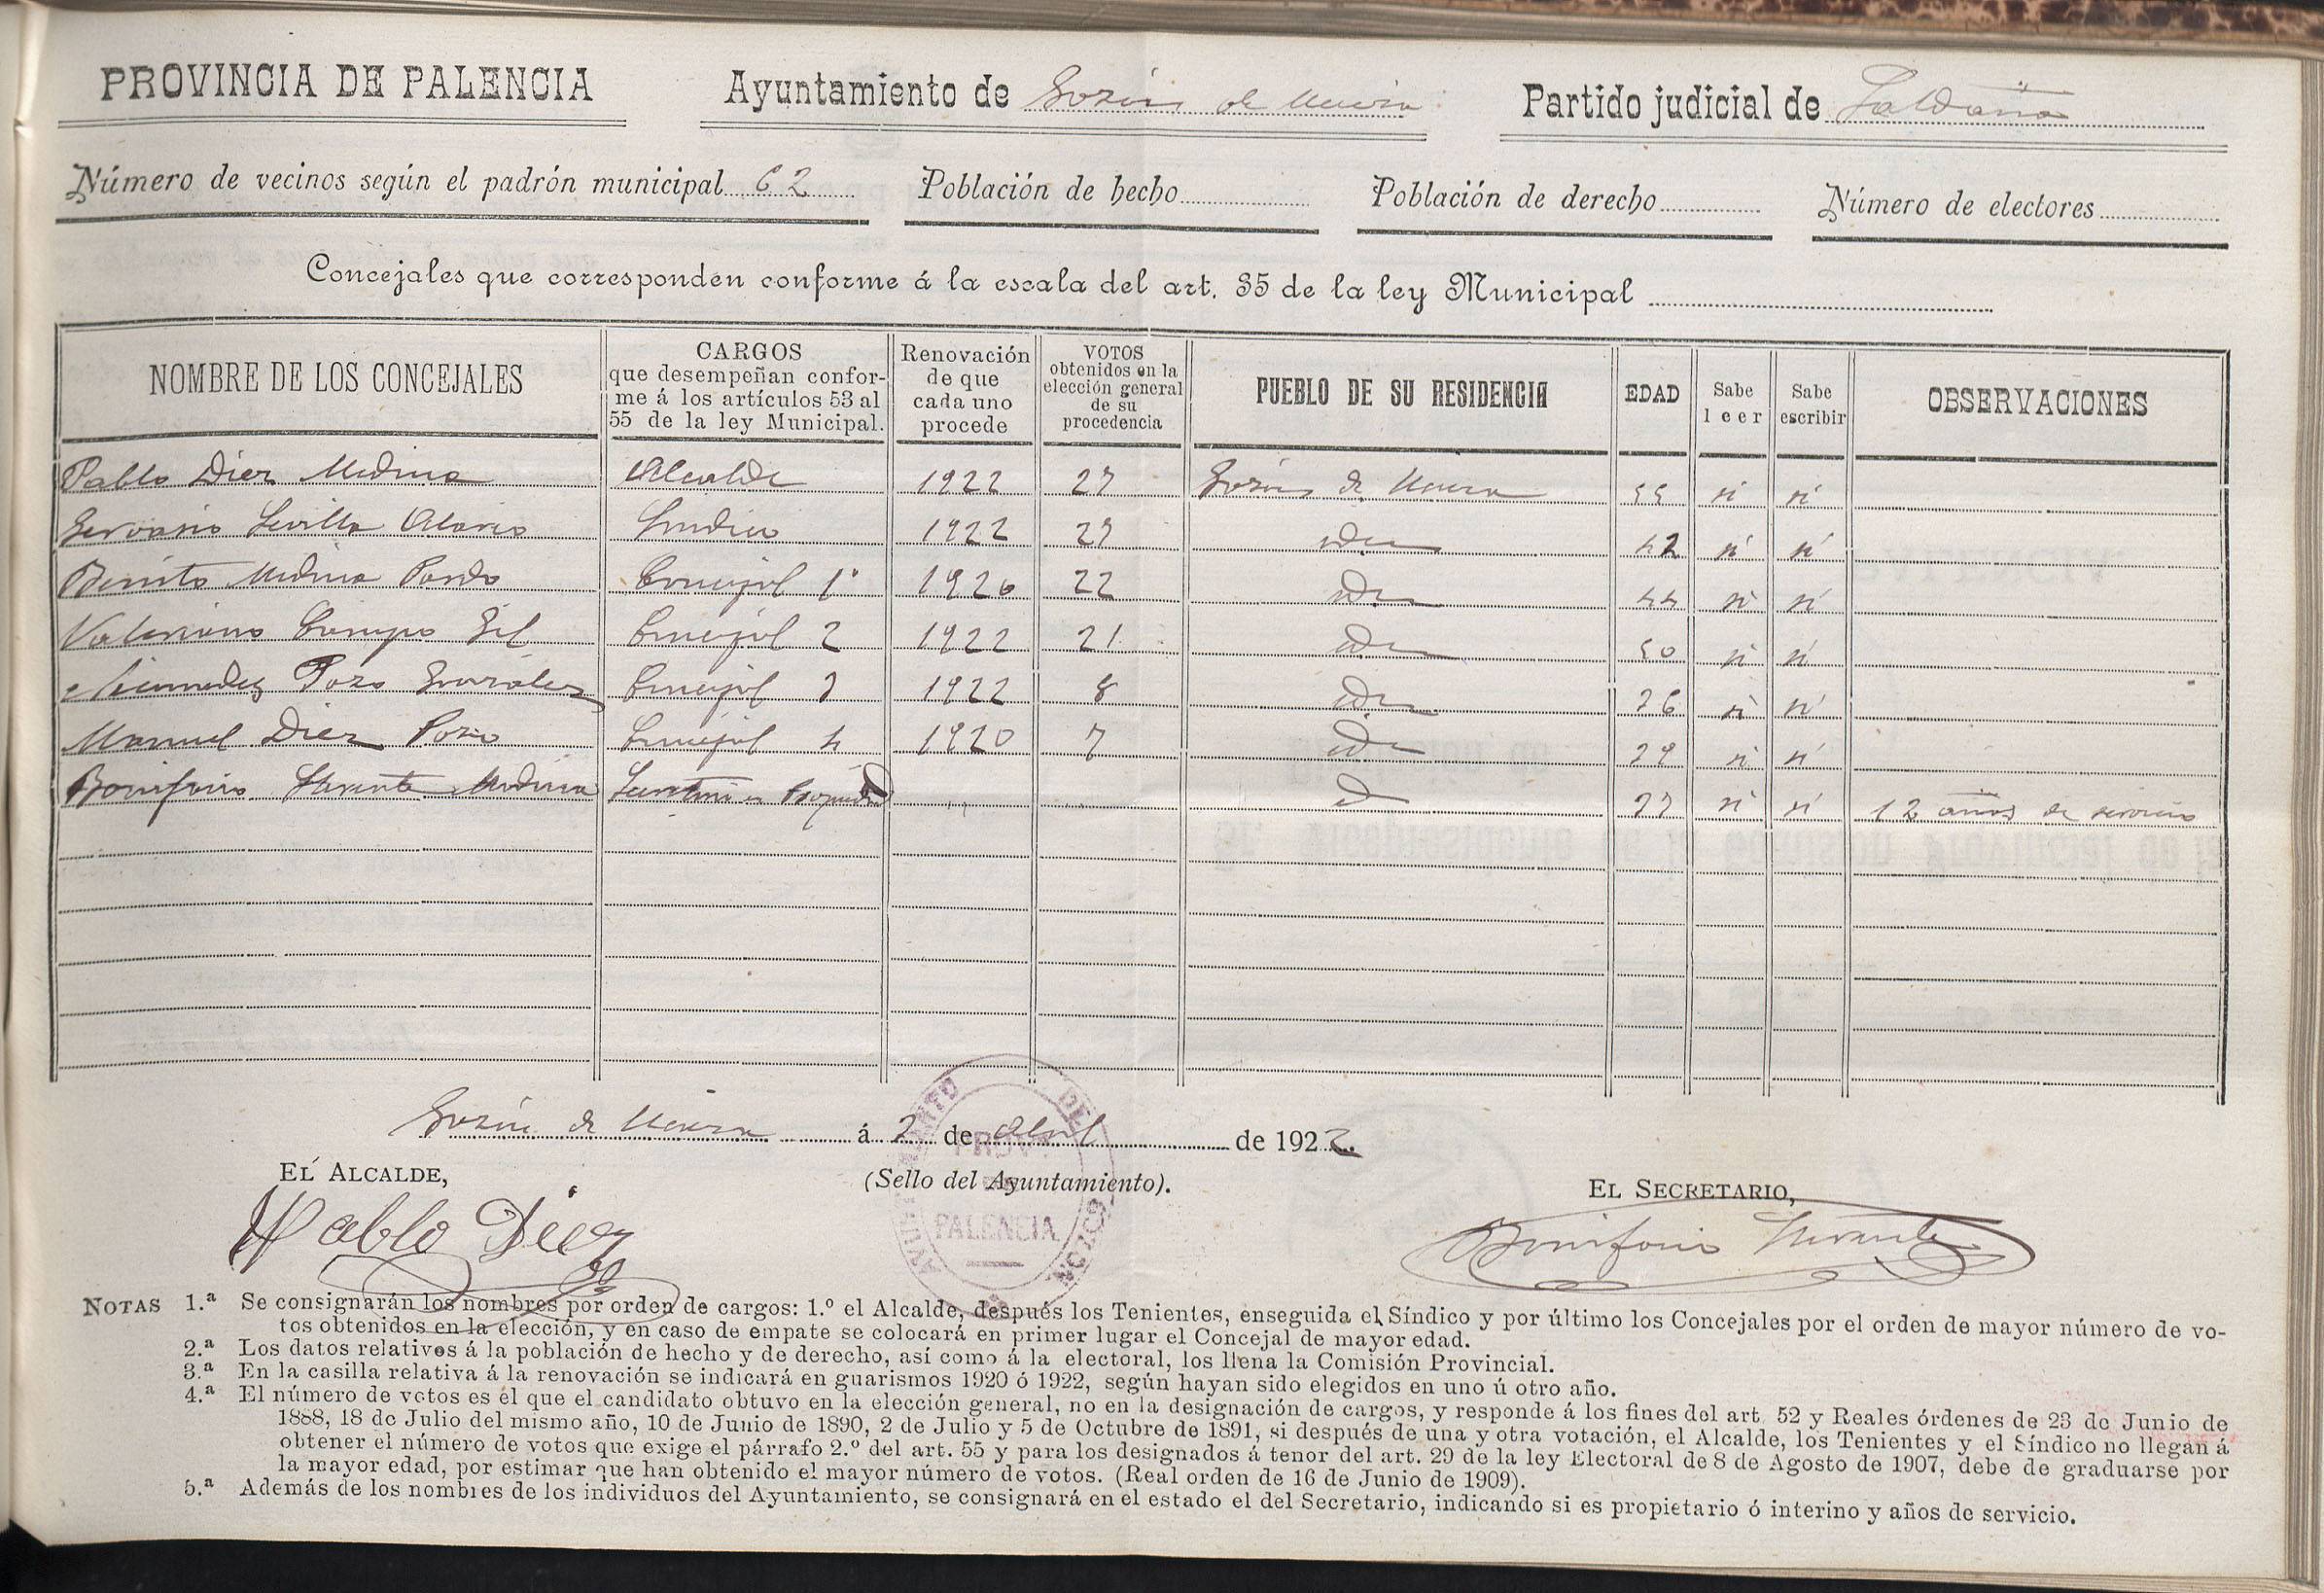 PROVINCIA DE PALENCIA Ayuntamiento de Gozón de Ucieza Partido judicial de Saldaña
Número de vecinos según el padrón municipal 62 Población de hecho Población de derecho Número de electores
Concejales que corresponden conforme á la escala del art. 35 de la ley Municipal
NOMBRE DE LOS CONCEJALES CARGOS que desempeñan confor- me á los artículos 53 al 55 de la ley Municipal. Renovación de que cada uno procede VOTOS obtenidos en la elección general de su procedencia PUEBLO DE SU RESIDENCIA EDAD Sabe leer Sabe escribir OBSERVACIONES
Pablo Diez Medina Alcalde 1922 27 Gozón de Ucieza 55 si si
Gervasio Sevilla Síndico 1922 idem 42 si si
Benito Medina Pardo Concejal 1º 1920 22 idem 44 si si
Valeriano Campo Gil Concejal 2 1922 21 idem 50 si si
Pozo González Concejal 3 1922 8 idem 36 si si
Manuel Diez Pozo Concejal 4 1920 7 id 29 si si
Bonifacio Llorente Medina Secretario en Propiedad " id si si 12 años de servicio
Gozón de Ucieza á 2 de Abril de 1922.
EL ALCALDE,
(Sello del Ayuntamiento).
EL SECRETARIO,
Pablo Diez
Bonifacio Llorente
PALENCIA
NOTAS 1.ª Se consignarán los nombres por orden de cargos: 1.º el Alcalde, después los Tenientes, enseguida el Síndico y por último los Concejales por el orden de mayor número de vo-
tos obtenidos en la elección, y en caso de empate se colocará en primer lugar el Concejal de mayor edad.
2.ª Los datos relativos á la población de hecho y de derecho, así como á la electoral, los llena la Comisión Provincial.
3.ª En la casilla relativa á la renovación se indicará en guarismos 1920 ó 1922, según hayan sido elegidos en uno ú otro año.
4.ª El número de votos es el que el candidato obtuvo en la elección general, no en la designación de cargos, y responde á los fines del art. 52 y Reales órdenes de 23 de Junio de
1888, 18 de Julio del mismo año, 10 de Junio de 1890, 2 de Julio y 5 de Octubre de 1891, si después de una y otra votación, el Alcalde, los Tenientes y el Síndico no llegan á
obtener el número de votos que exige el párrafo 2.º del art. 55 y para los designados á tenor del art. 29 de la ley Electoral de 8 de Agosto de 1907, debe de graduarse por
la mayor edad, por estimar que han obtenido el mayor número de votos. (Real orden de 16 de Junio de 1909).
5.ª Además de los nombres de los individuos del Ayuntamiento, se consignará en el estado el del Secretario, indicando si es propietario ó interino y años de servicio.